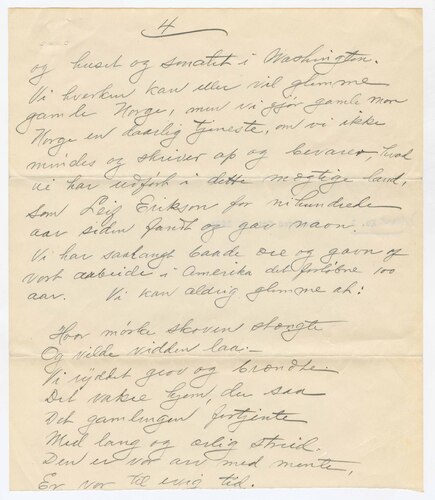 4
og huset og senatet i Washington.
Vi hverken kan eller vil glemme
gamle Norge, men vi gjør gamle mor
Norge en daarlig tjeneste, om vi ikke
mindes og skriver op og bevarer, hvad
vi har udført i dette mægtige land,
som Leif Erikson for nihundrede
aar siden fandt og gav navn.
Vi har saalangt baade ære og gavn af
vort arbeide i Amerika det forløbne 100
aar. Vi kan aldrig glemme at:
Hvor mørke skoven stængte
Og vilde vidden laa.—
Vi ryddet grov og brændte.
Det vakre hjem, du saa
Det gamlingen fortjente
Med lang og ærlig strid.
Den er vor arv med rente,
Er vor til evig tid.